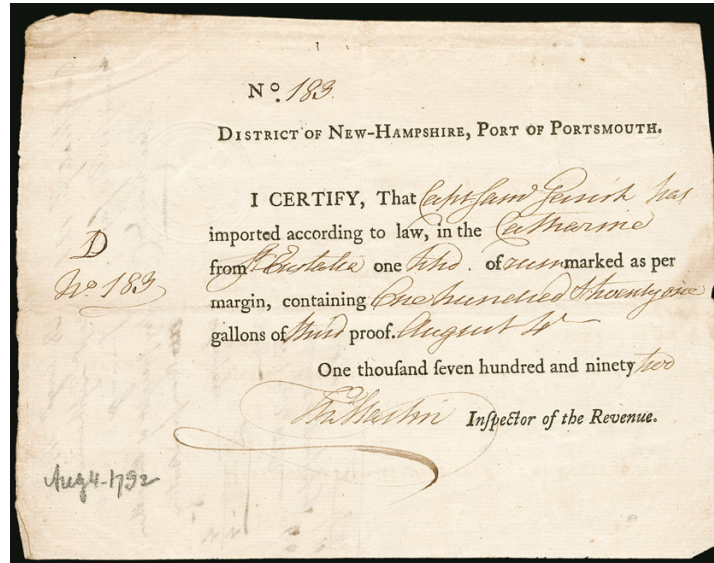 No. 183
DISTRICT OF NEW-HAMPSHIRE, PORT OF PORTSMOUTH.
I CERTIFY, That Capt Saml Gerrish has
imported according to law, in the Catharine
from St Eustatia one hhd. of rum marked as per
D
No 183
margin, containing One hundred & twenty
gallons of third proof. August 4
One thouſand ſeven hundred and ninety two
Th. Martin Inſpector of the Revenue.
Aug 4-1792